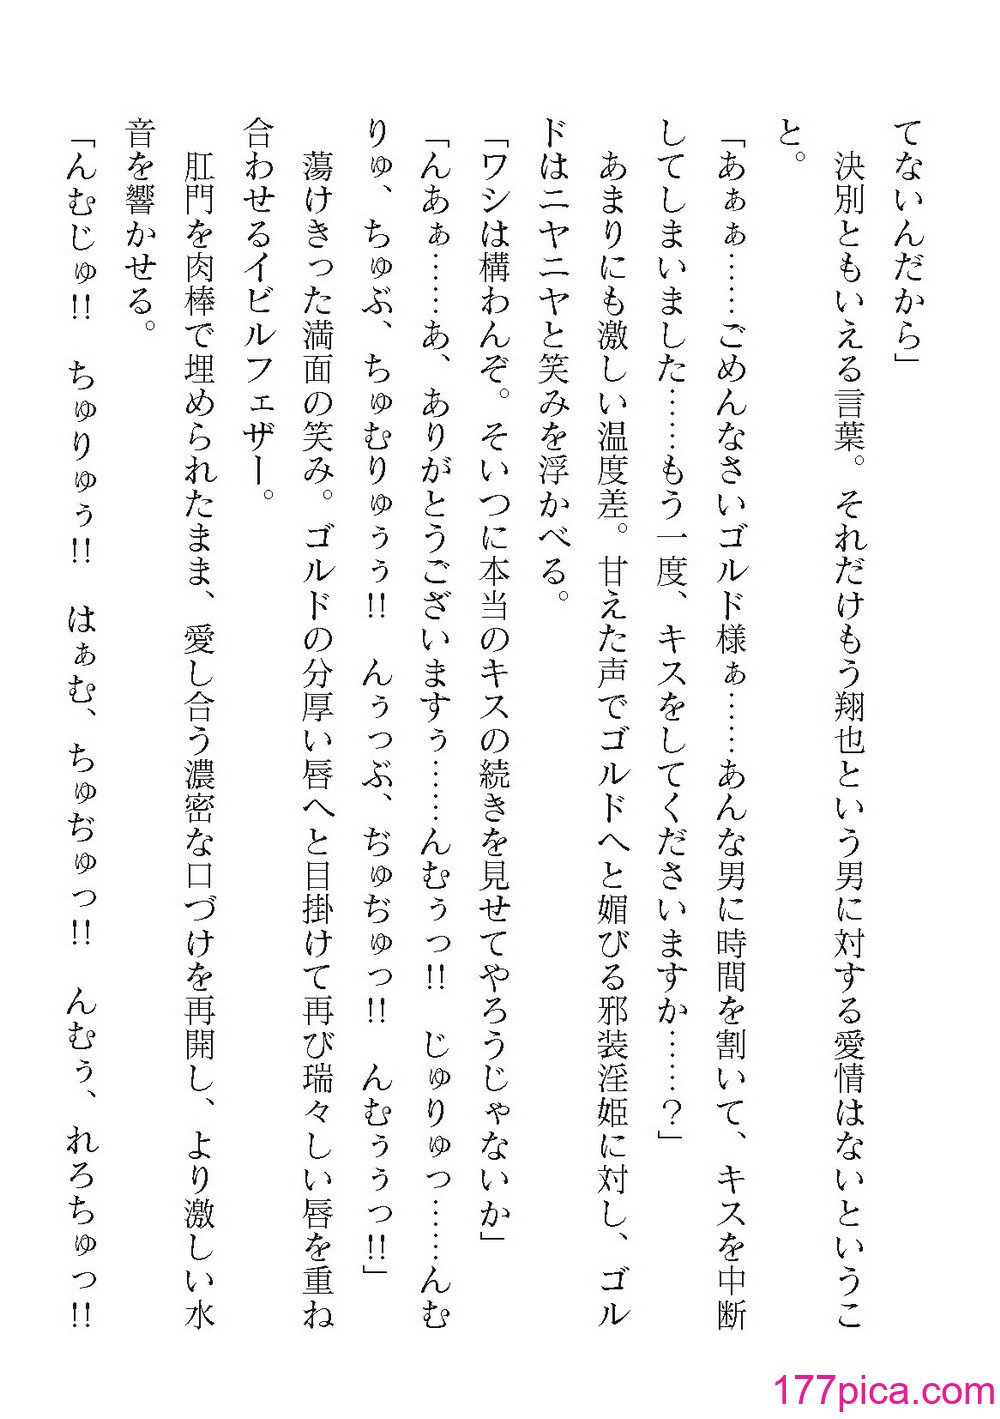 てないんだから」
　決別ともいえる言葉。それだけもう翔也という男に対する愛情はないというこ
と。
「あぁぁ……ごめんなさいゴルド様ぁ……あんな男に時間を割いて、キスを中断
してしまいました……もう一度、キスをしてくださいますか……？」
　あまりにも激しい温度差。甘えた声でゴルドへと媚びる邪装淫姫に対し、ゴル
ドはニヤニヤと笑みを浮かべる。
「ワシは構わんぞ。そいつに本当のキスの続きを見せてやろうじゃないか」
「んあぁ……あ、ありがとうございますぅ……んむぅっ!!　じゅりゅっ……んむ
りゅ、ちゅぶ、ちゅむりゅぅぅ!!　んぅっぶ、ぢゅぢゅっ!!　んむぅぅっ!!」
　蕩けきった満面の笑み。ゴルドの分厚い唇へと目掛けて再び瑞々しい唇を重ね
合わせるイビルフェザー。
　肛門を肉棒で埋められたまま、愛し合う濃密な口づけを再開し、より激しい水
音を響かせる。
「んむじゅ!!　ちゅりゅぅ!!　はぁむ、ちゅぢゅっ!!　んむぅ、れろちゅっ!!
177pica.com